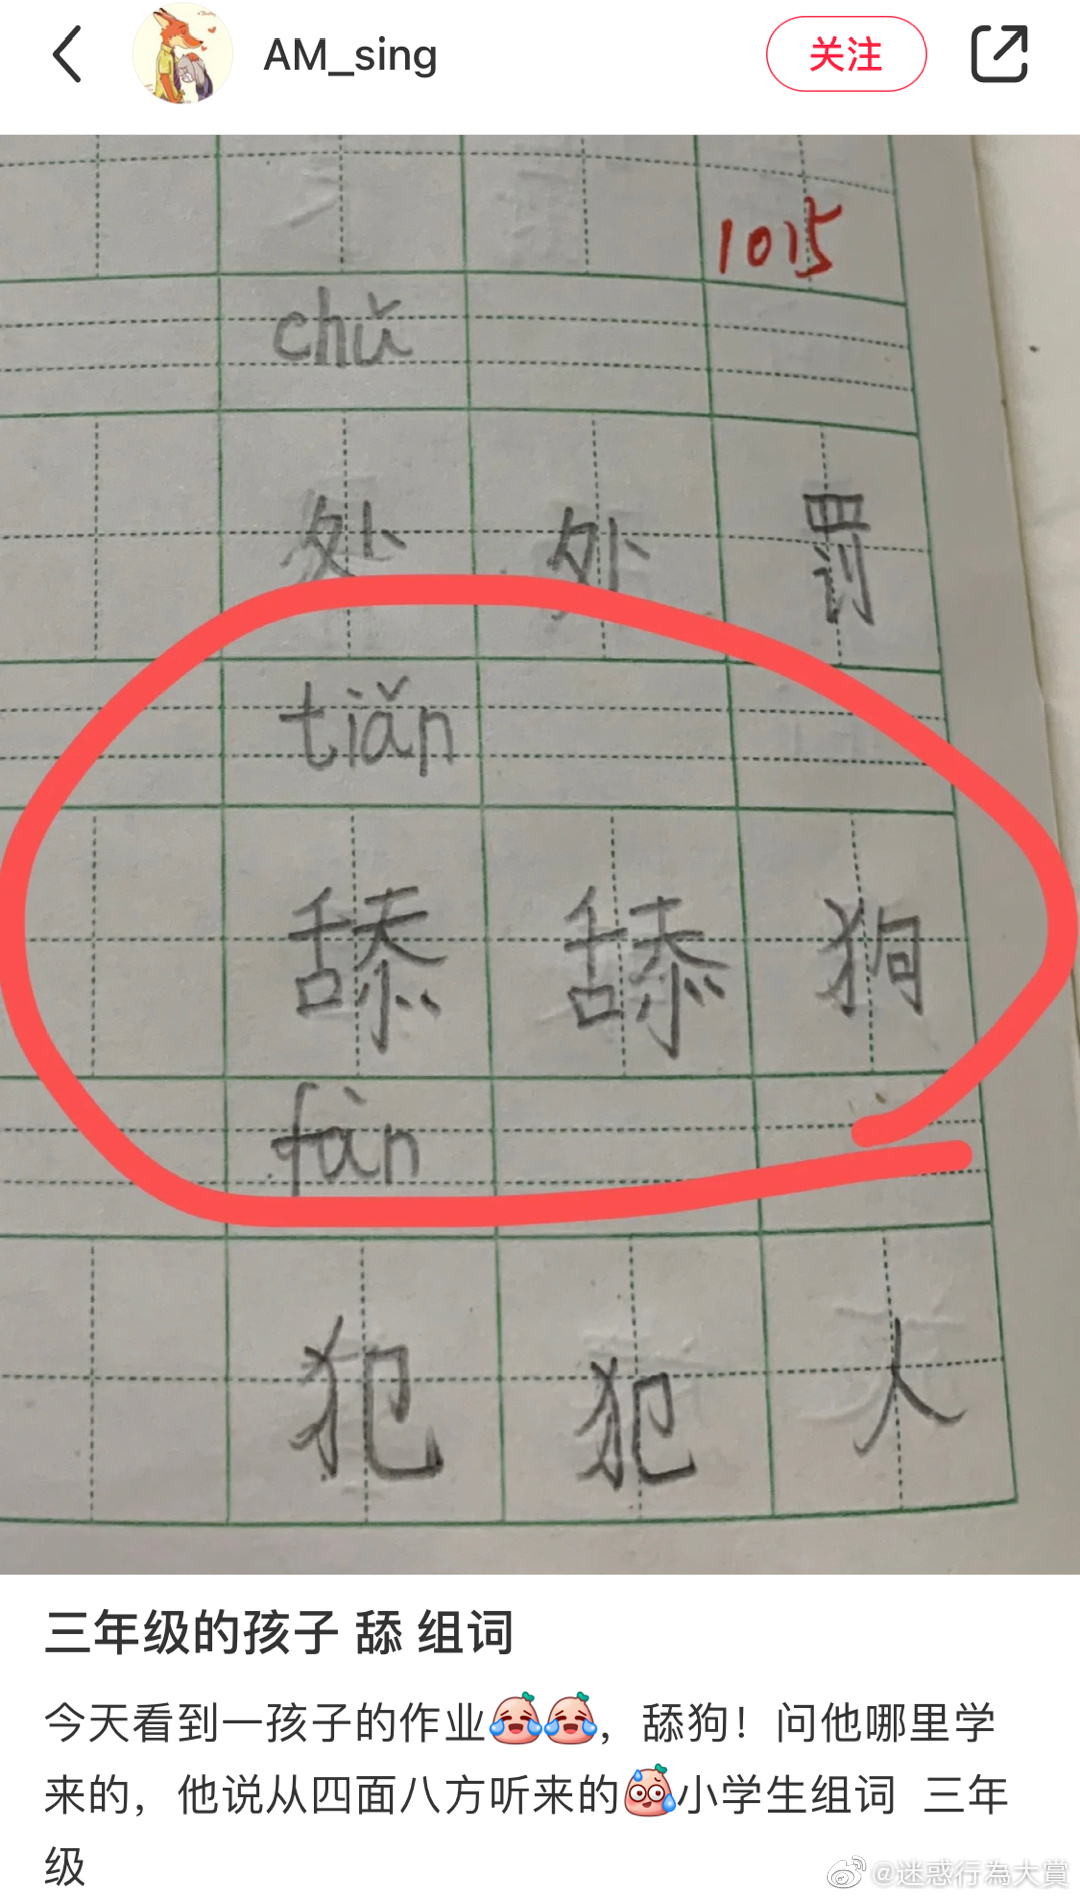 AM_sing
关注
1015
chǔ
处 处 罚
tiǎn
舔 舔 狗
fàn
犯 犯 人
三年级的孩子 舔 组词
今天看到一孩子的作业，舔狗！问他哪里学
来的，他说从四面八方听来的小学生组词 三年
级
@迷惑行為大賞